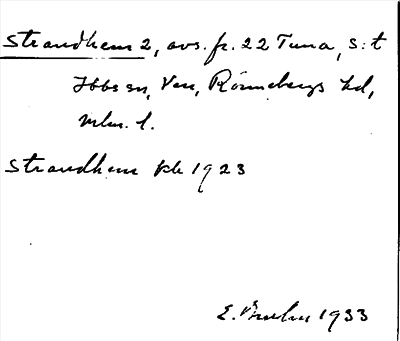 Strandhem 2, avs. fr. 22 Tuna, S:t
Ibbs sn, Ven, Rönnebergs hd,
Mlm. l.
Strandhem pk 1923
E. 1933